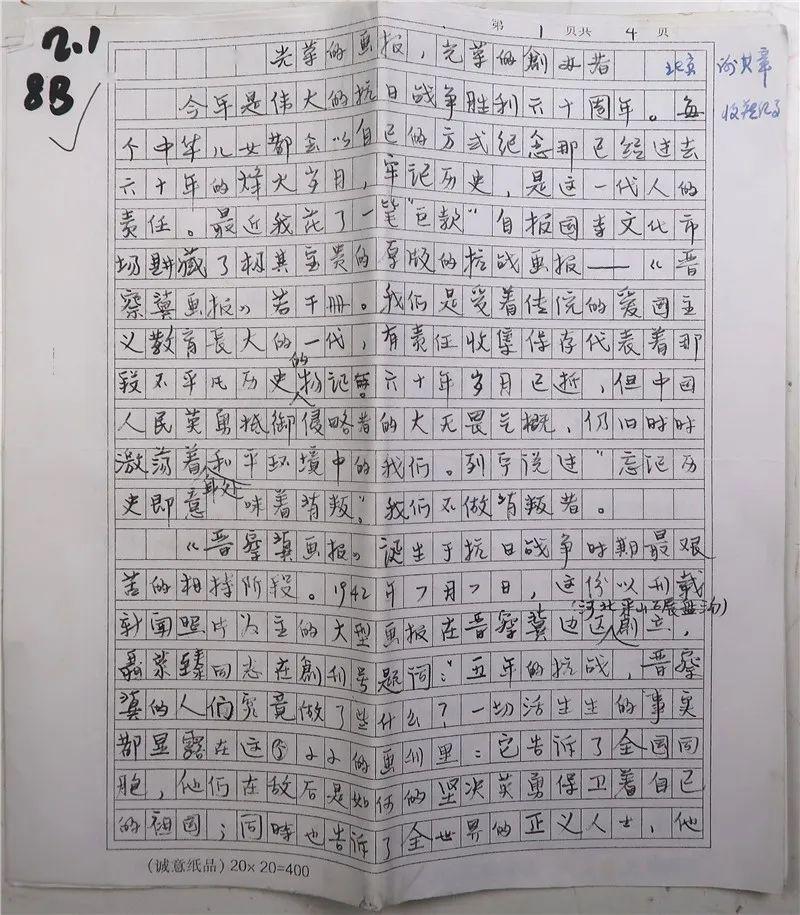 第 1 页共 4 页
2.1
8B
光荣的画报，光荣的創办者 北京 谢其章
今年是伟大的抗日战争胜利六十周年。每
个中华儿女都会以自己的方式纪念那已经过去
六十年的烽火岁月，牢记历史，是这一代人的
责任。最近我花了一笔"巨款"自报国寺文化市
场购藏了极其宝贵的原版的抗战画报——《晋
察冀画报》若干册。我们是受着传统的爱国主
义教育長大的一代，有责任收集保存代表着那
段不平凡历史的物记。六十年岁月已逝，但中国
人民英勇抵御侵略者的大无畏气概，仍旧时时
激荡着身处和平环境中的我们。列宁说过"忘记历
史即意味着背叛"。我们不做背叛者。
《晋察冀画报》诞生于抗日战争时期最艰
苦的相持阶段。1942年7月7日，这份以刊载
新闻照片为主的大型画报在晋察冀边区(河北平山石辰盘沟)創立，
聶荣臻同志在創刊号题词："五年的抗战，晋察
冀的人们究竟做了些什么？一切活生生的事实
都显露在这小小的画刊里：它告诉了全国同
胞，他们在敌后是如何的坚决英勇保卫着自己
的祖国；同時也告诉了全世界的正义人士，他
(诚意纸品) 20×20=400